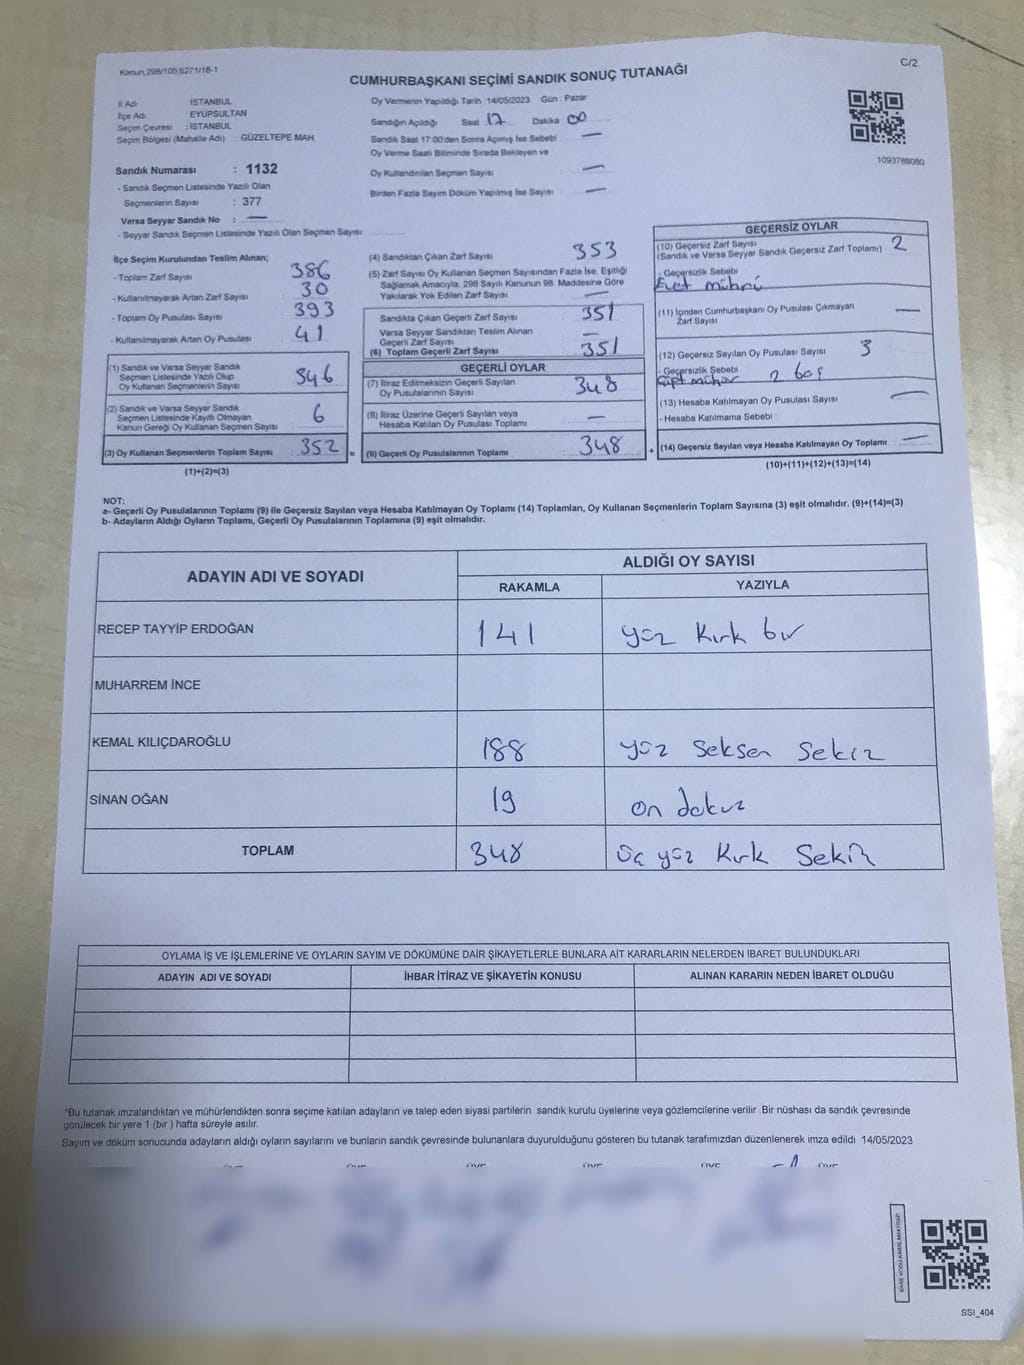 Kanun,298/105,6271/18-1
C/2
CUMHURBAŞKANI SEÇİMİ SANDIK SONUÇ TUTANAĞI
İl Adı : İSTANBUL
İlçe Adı : EYÜPSULTAN
Seçim Çevresi : İSTANBUL
Seçim Bölgesi (Mahalle Adı) : GÜZELTEPE MAH.
Sandık Numarası : 1132
- Sandık Seçmen Listesinde Yazılı Olan
Seçmenlerin Sayısı : 377
Varsa Seyyar Sandık No : —
- Seyyar Sandık Seçmen Listesinde Yazılı Olan Seçmen Sayısı
Oy Vermenin Yapıldığı Tarih :14/05/2023 Gün : Pazar
Sandığın Açıldığı Saat 17 Dakika 00
Sandık Saat 17:00'den Sonra Açılmış İse Sebebi : —
Oy Verme Saati Bitiminde Sırada Bekleyen ve
Oy Kullandırılan Seçmen Sayısı : —
Birden Fazla Sayım Döküm Yapılmış İse Sayısı : —
1093788080
İlçe Seçim Kurulundan Teslim Alınan;
- Toplam Zarf Sayısı : 386
- Kullanılmayarak Artan Zarf Sayısı : 30
- Toplam Oy Pusulası Sayısı : 393
- Kullanılmayarak Artan Oy Pusulası : 41
(1) Sandık ve Varsa Seyyar Sandık
Seçmen Listesinde Yazılı Olup
Oy Kullanan Seçmenlerin Sayısı : 346
(2) Sandık ve Varsa Seyyar Sandık
Seçmen Listesinde Kayıtlı Olmayan
Kanun Gereği Oy Kullanan Seçmen Sayısı : 6
(3) Oy Kullanan Seçmenlerin Toplam Sayısı : 352 =
(1)+(2)=(3)
(4) Sandıktan Çıkan Zarf Sayısı : 353
(5) Zarf Sayısı Oy Kullanan Seçmen Sayısından Fazla İse, Eşitliği
Sağlamak Amacıyla; 298 Sayılı Kanunun 98. Maddesine Göre
Yakılarak Yok Edilen Zarf Sayısı : —
Sandıkta Çıkan Geçerli Zarf Sayısı : 351
Varsa Seyyar Sandıktan Teslim Alınan
Geçerli Zarf Sayısı : —
(6) Toplam Geçerli Zarf Sayısı : 351
GEÇERLİ OYLAR
(7) İtiraz Edilmeksizin Geçerli Sayılan
Oy Pusulalarının Sayısı : 348
(8) İtiraz Üzerine Geçerli Sayılan veya
Hesaba Katılan Oy Pusulası Toplamı : —
(9) Geçerli Oy Pusulalarının Toplamı : 348 +
GEÇERSİZ OYLAR
(10) Geçersiz Zarf Sayısı
(Sandık ve Varsa Seyyar Sandık Geçersiz Zarf Toplamı) : 2
- Geçersizlik Sebebi
Evet mührü
(11) İçinden Cumhurbaşkanı Oy Pusulası Çıkmayan
Zarf Sayısı : —
(12) Geçersiz Sayılan Oy Pusulası Sayısı : 3
- Geçersizlik Sebebi
Çift mühür 2 boş
(13) Hesaba Katılmayan Oy Pusulası Sayısı : —
- Hesaba Katılmama Sebebi :
(14) Geçersiz Sayılan veya Hesaba Katılmayan Oy Toplamı : —
(10)+(11)+(12)+(13)=(14)
NOT:
a- Geçerli Oy Pusulalarının Toplamı (9) ile Geçersiz Sayılan veya Hesaba Katılmayan Oy Toplamı (14) Toplamları, Oy Kullanan Seçmenlerin Toplam Sayısına (3) eşit olmalıdır. (9)+(14)=(3)
b- Adayların Aldığı Oyların Toplamı, Geçerli Oy Pusulalarının Toplamına (9) eşit olmalıdır.
ADAYIN ADI VE SOYADI
ALDIĞI OY SAYISI
RAKAMLA YAZIYLA
RECEP TAYYİP ERDOĞAN 141 yüz kırk bir
MUHARREM İNCE
KEMAL KILIÇDAROĞLU 188 yüz seksen sekiz
SİNAN OĞAN 19 on dokuz
TOPLAM 348 üç yüz kırk sekiz
OYLAMA İŞ VE İŞLEMLERİNE VE OYLARIN SAYIM VE DÖKÜMÜNE DAİR ŞİKAYETLERLE BUNLARA AİT KARARLARIN NELERDEN İBARET BULUNDUKLARI
ADAYIN ADI VE SOYADI İHBAR İTİRAZ VE ŞİKAYETİN KONUSU ALINAN KARARIN NEDEN İBARET OLDUĞU
*Bu tutanak imzalandıktan ve mühürlendikten sonra seçime katılan adayların ve talep eden siyasi partilerin sandık kurulu üyelerine veya gözlemcilerine verilir .Bir nüshası da sandık çevresinde
görülecek bir yere 1 (bir ) hafta süreyle asılır.
Sayım ve döküm sonucunda adayların aldığı oyların sayılarını ve bunların sandık çevresinde bulunanlara duyurulduğunu gösteren bu tutanak tarafımızdan düzenlenerek imza edildi 14/05/2023
SSI_404